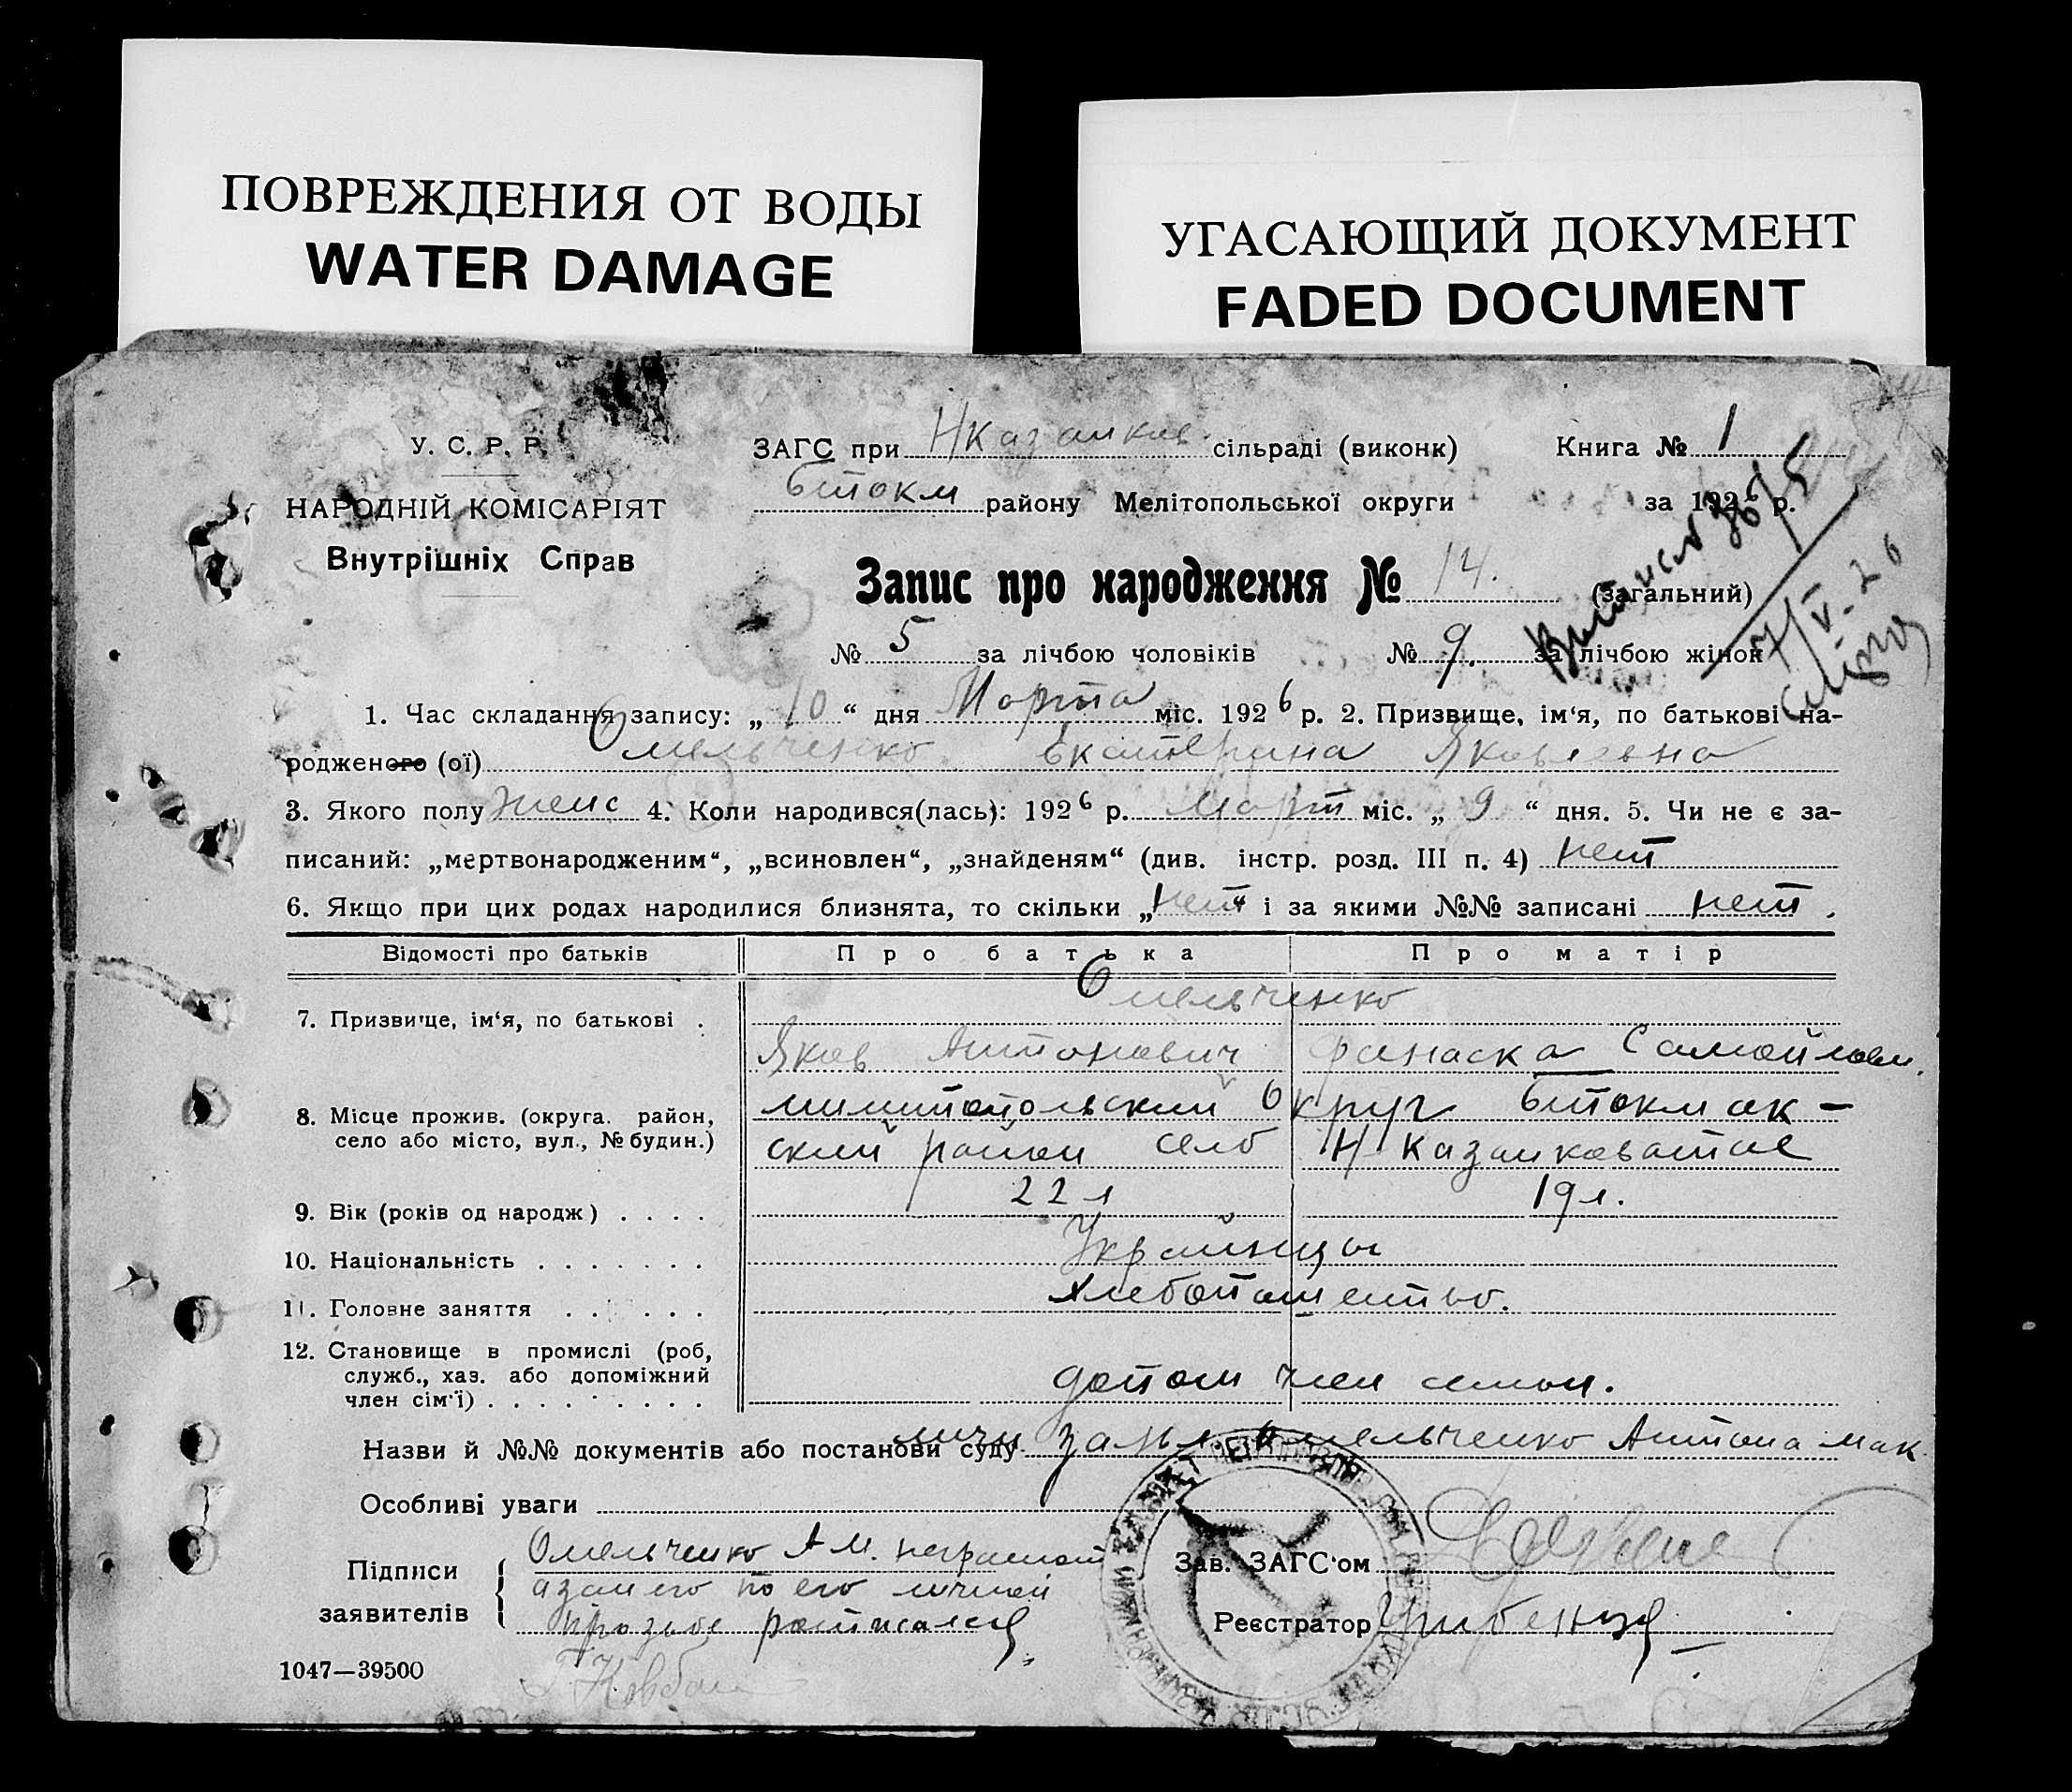 ПОВРЕЖДЕНИЯ ОТ ВОДЫ
WATER DAMAGE
УГАСАЮЩИЙ ДОКУМЕНТ
FADED DOCUMENT
У. С. Р. Р.
НАРОДНІЙ КОМІСАРІЯТ
Внутрішніх Справ
ЗАГС при НКазанков сільраді (виконк)
Бтокм району Мелітопольської округи
Книга № 1
за 1926 р.
Запис про народження № 14. (загальний)
№ 5 за лічбою чоловіків № 9. за лічбою жінок
7/V-26
1. Час складання запису: „ 10 “ дня Марта міс. 1926 р. 2. Призвище, ім‘я, по батькові на-
родженого (ої) Омельченко Екатерина Яковлевна
3. Якого полу женс 4. Коли народився(лась): 1926 р. Март міс. „ 9 “ дня. 5. Чи не є за-
писаний: „мертвонародженим“, „всиновлен“, „знайденям“ (див. інстр. розд. III п. 4) нет
6. Якщо при цих родах народилися близнята, то скільки „нет“ і за якими №№ записані нет.
Відомості про батьків Про батька Про матір
Омельченко
7. Призвище, ім‘я, по батькові .
Яков Антонович Самойлов.
8. Місце прожив. (округа. район,
село або місто, вул., № будин.)
округ Бтокмак-
ский район село Н Казанковатое
9. Вік (років од народж) . . . . 22 л 19 л.
10. Національність . . . . . . . Украйнцы
11. Головне заняття . . . . . . Хлебопашество.
12. Становище в промислі (роб,
служб., хаз. або допоміжний
член сім‘ї) . . . . . . . . . допом член семьи.
Назви й №№ документів або постанови суду личн заяв. Омельченко Антона Мак
Особливі уваги
Підписи
заявителів
Омельченко А М. неграмотн
а за него по его личной
прозьбе росписался
Г Ковбаса
Зав. ЗАГС‘ом
Реєстратор
1047—39500